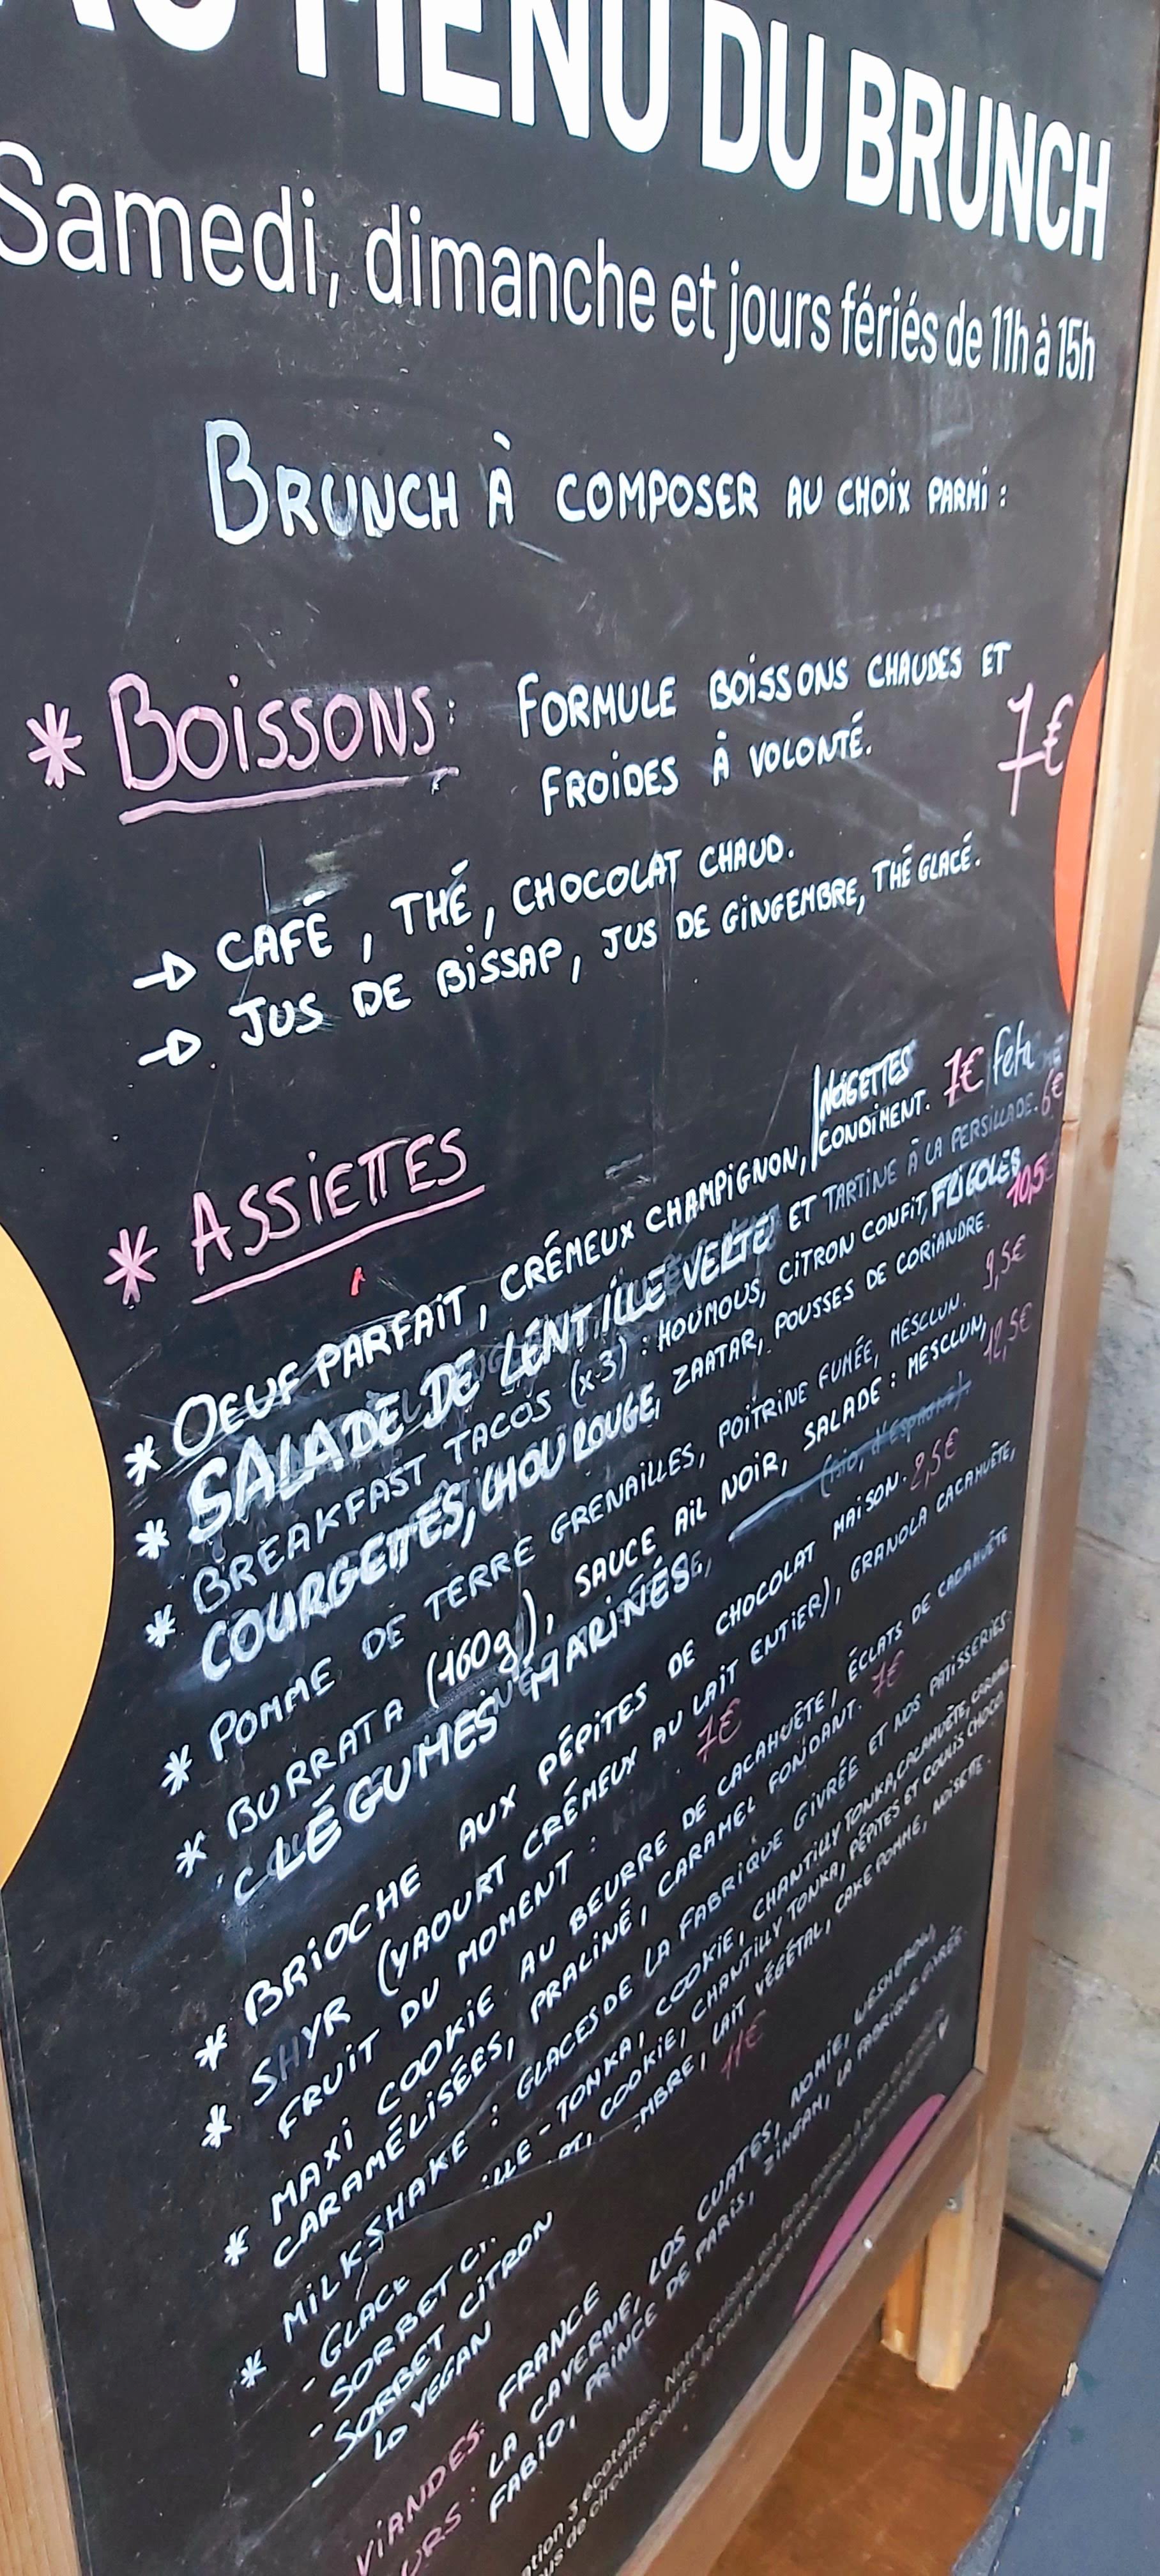 AU MENU DU BRUNCH
Samedi, dimanche et jours fériés de 11h à 15h
BRUNCH À COMPOSER AU CHOIX PARMI :
* BOISSONS : FORMULE BOISSONS CHAUDES ET
FROIDES À VOLONTÉ. 7€
→ CAFÉ, THÉ, CHOCOLAT CHAUD.
→ JUS DE BISSAP, JUS DE GINGEMBRE, THÉ GLACÉ.
* ASSIETTES
* OEUF PARFAIT, CRÉMEUX CHAMPIGNON, NOISETTES CONDIMENT. 7€ feta
* SALADE DE LENTILLE VERTE ET TARTINE À LA PERSILLADE. 6€
* BREAKFAST TACOS (x3) : HOUMOUS, CITRON CONFIT, FRIGOLES
COURGETTES, CHOU ROUGE, ZAATAR, POUSSES DE CORIANDRE. 10,5€
* POMME DE TERRE GRENAILLES, POITRINE FUMÉE, MESCLUN. 9,5€
* BURRATA (160g), SAUCE AIL NOIR, SALADE : MESCLUN, 12,5€
LÉGUMES MARINÉS, (bio, d'Espagne).
* BRIOCHE AUX PÉPITES DE CHOCOLAT MAISON. 2,5€
* SKYR (YAOURT CRÉMEUX AU LAIT ENTIER), GRANOLA CACAHUÈTE,
FRUIT DU MOMENT : 7€
* MAXI COOKIE AU BEURRE DE CACAHUÈTE, ÉCLATS DE CACAHUÈTE
CARAMÉLISÉES, PRALINÉ, CARAMEL FONDANT. 7€
* MILKSHAKE : GLACES DE LA FABRIQUE GIVRÉE ET NOS PATISSERIES:
- GLACE ILLE - TONKA, COOKIE, CHANTILLY TONKA, CACAHUÈTE, CARAMEL
- SORBET COOKIE, CHANTILLY TONKA, PÉPITES ET COULIS CHOCO.
- SORBET CITRON MBRE, LAIT VÉGÉTAL, CAKE POMME, NOISETTE.
VEGAN 11€
VIANDES: FRANCE
URS : LA CAVERNE, LOS CUATES, NOMIE,
FABIO, PRINCE DE PARIS, ZINGAM, LA FABRIQUE GIVRÉE.
ation 3 écotables. Notre cuisine est faite maison à base de produits
us de circuits courts, le tout préparé avec amour par nos équipes